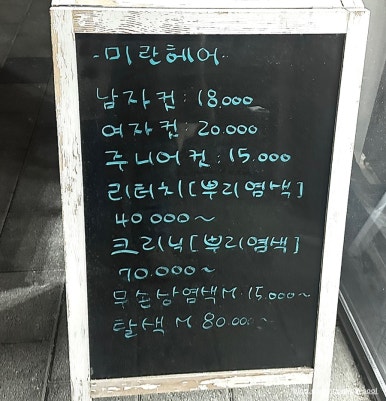 -미란헤어-
남자컷: 18.000
여자컷: 20.000
주니어컷: 15.000
리터치[뿌리염색]
40.000~
크리닉[뿌리염색]
70.000~
무손상염색M.15.000~
탈색 M 80.000~